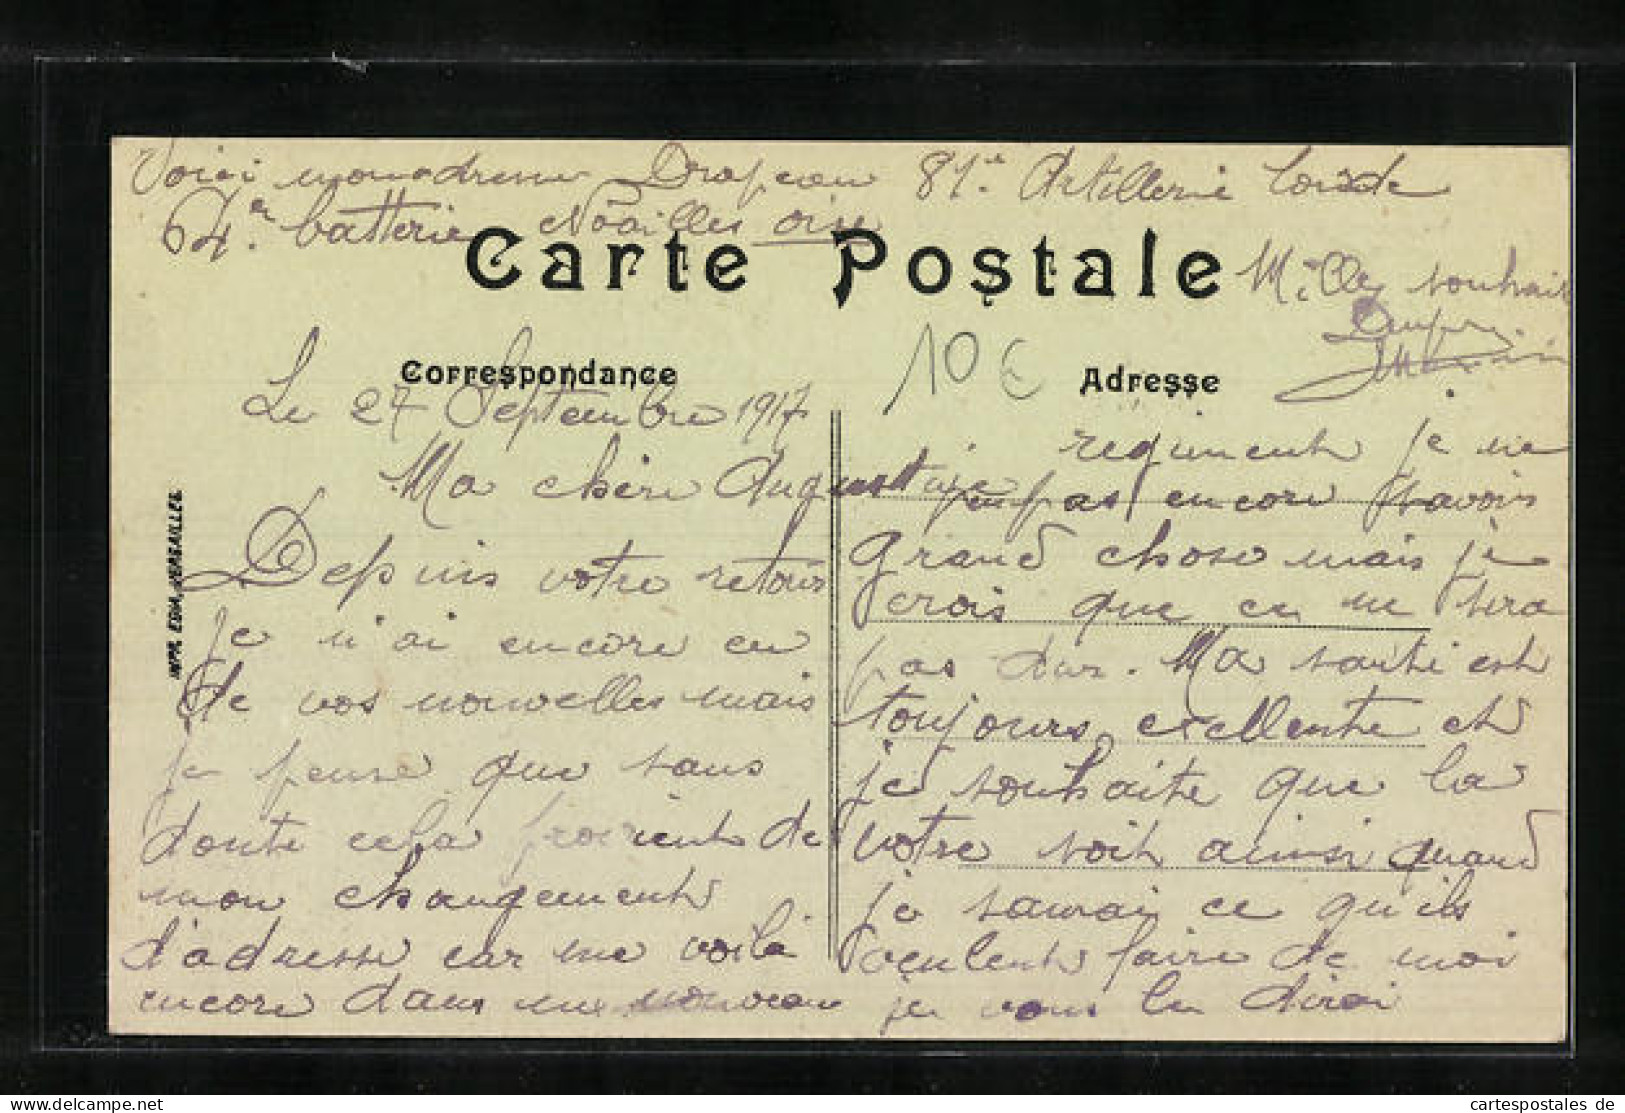 Voici mon adresse Drapeau 81e Artillerie Lourde
64e batterie Noailles Oise
Carte Postale
Mille souhait
Correspondance
Adresse
10 €
Le 27 Septembre 1917
Ma chère August
Depuis votre retour
je n'ai encore eu
de vos nouvelles mais
je pense que sans
doute cela provient de
mon changement
d'adresse car me voilà
encore dans un nouveau
regiment je ne
pas encore savoir
grand chose mais je
crois que ce ne sera
pas dur. Ma santé est
toujours excellente et
je souhaite que la
votre soit ainsi quand
je saurai ce qu'ils
veulent faire de moi
je vous le dirai
IMP. EDIA. VERSAILLES
www.delcampe.net
cartespostales de